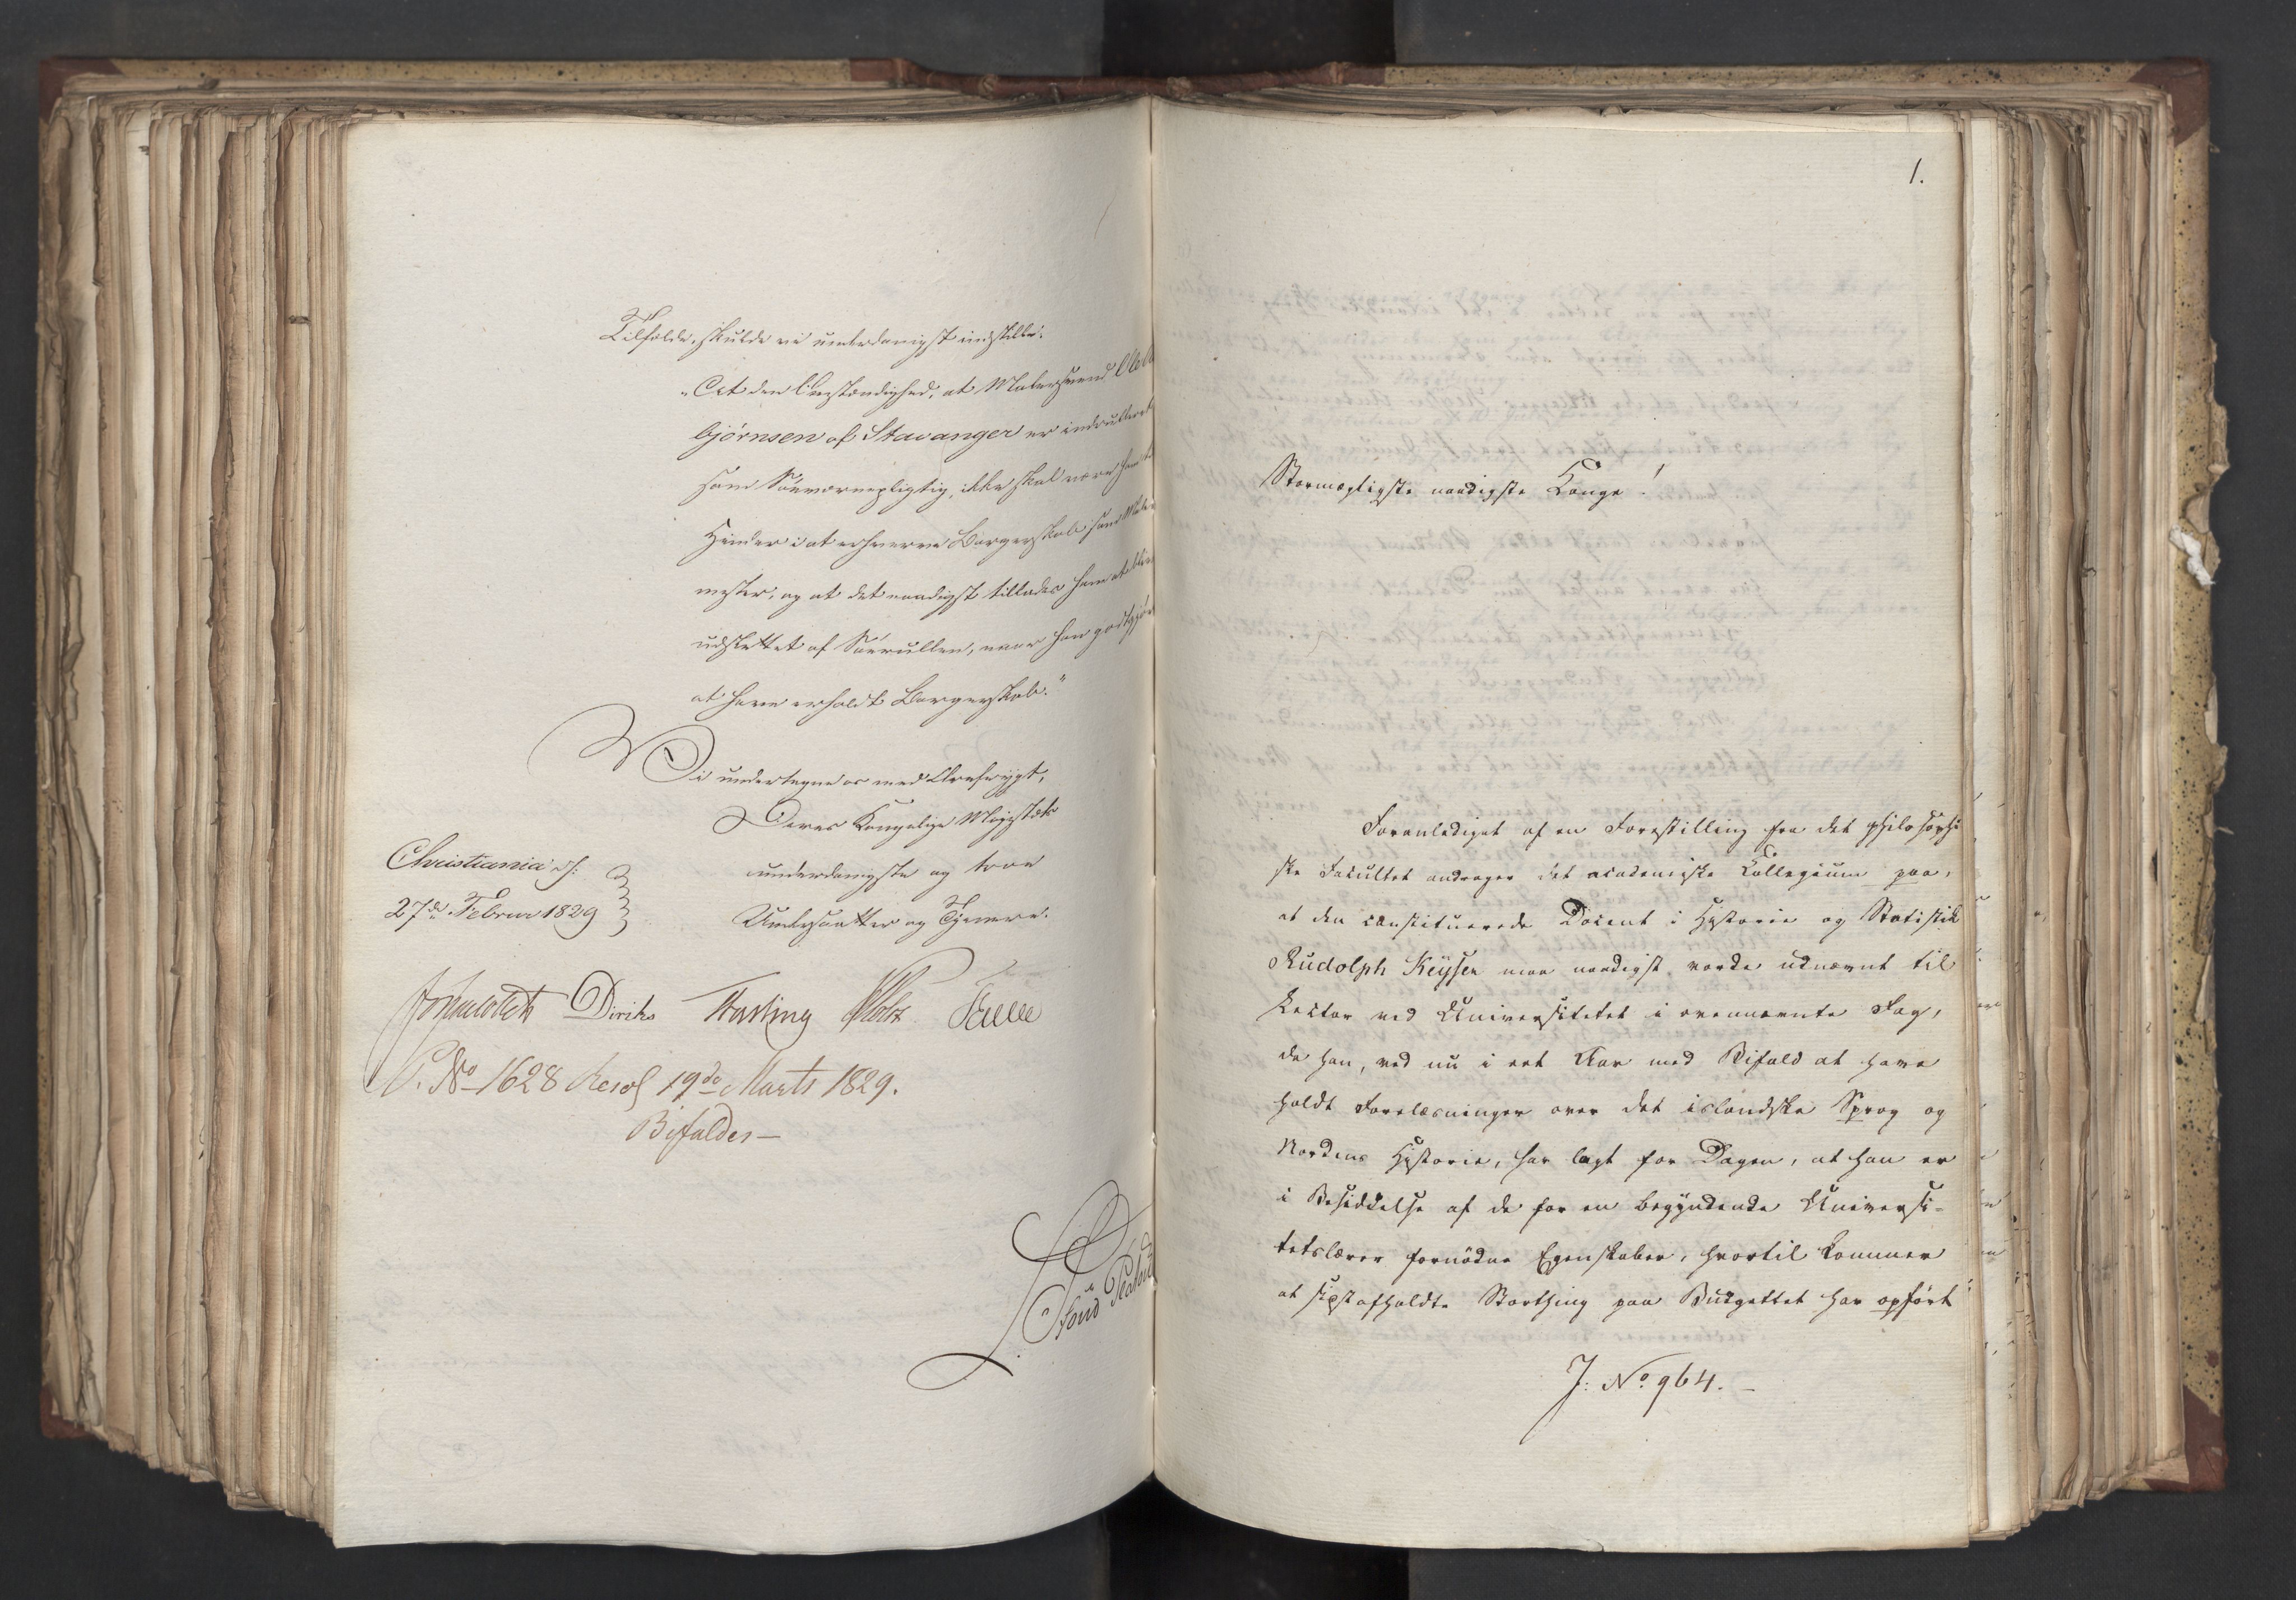 Tilfælde, skulde vi underdanigst indstille:
"At den Omstændighed, at Malersvend Ole
Gjörnsen af Stavanger er indrulleret
som Søeværnepligtig, ikke skal være ham til
Hinder i at erhverve Borgerskab som Maler
mester, og at det naadigst tillades ham at blive
udslettet af Søerullen, naar han godtgjør
at have erholdt Borgerskab."
Vi undertegne os med Ærefrygt,
Deres Kongelige Majestæts
underdanigste og troe
Undersaatter og Tjenere.
Christiania d:
27de Februar 1829
Diriks
P. No 1628 Resol 19de Marts 1829.
Bifaldes —
1.
Stormægtigste naadigste Konge!
Foranlediget af en Forestilling fra det philosophi
ske Facultet andrager det academiske Collegium paa,
at den constituerede Docent i Historie og Statistik
Rudolph Keyser maa naadigst vorde udnævnt til
Lector ved Universitetet i ovennævnte Fag,
da han, ved nu i eet Aar med Bifald at have
holdt Forelæsninger over det islandske Sprog og
Nordens Historie, har lagt for Dagen, at han er
i Besiddelse af de for en begyndende Universi-
tetslærer fornødne Egenskaber, hvortil kommer
at sidst afholdte Storthing paa Budgettet har opført
J: No 964. –